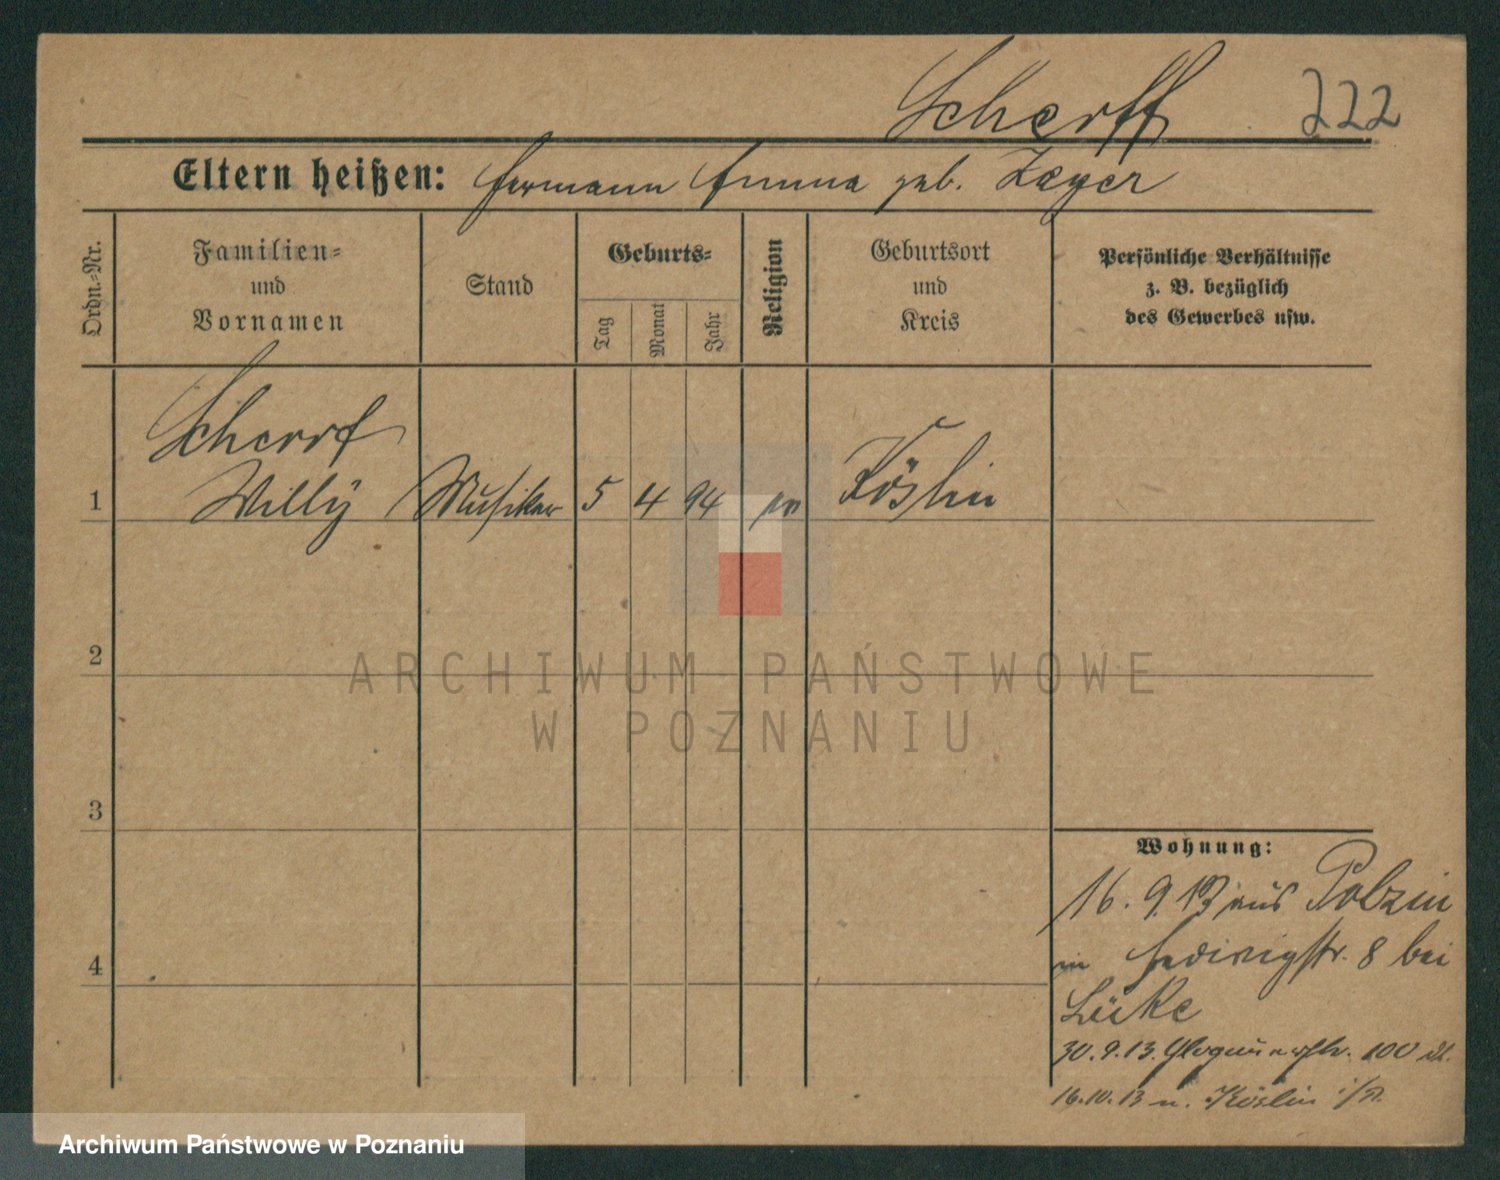 Scherff 222
Eltern heißen: Hermann Emma geb. Zayer
Ordn.-Nr.
Familien-
und
Vornamen
Stand
Geburts-
Tag
Monat
Jahr
Religion
Geburtsort
und
Kreis
Persönliche Verhältnisse
z. B. bezüglich
des Gewerbes usw.
Scherff
1 Willy Musiker 5 4 94 Köslin
2
3
4
Wohnung:
16. 9. 13 aus Polzin
in Hedwigstr. 8 bei
Lüke
30. 9. 13. Glogauerstr. 100
16. 10. 13 n. Köslin i/P.
ARCHIWUM PAŃSTWOWE
W POZNANIU
Archiwum Państwowe w Poznaniu